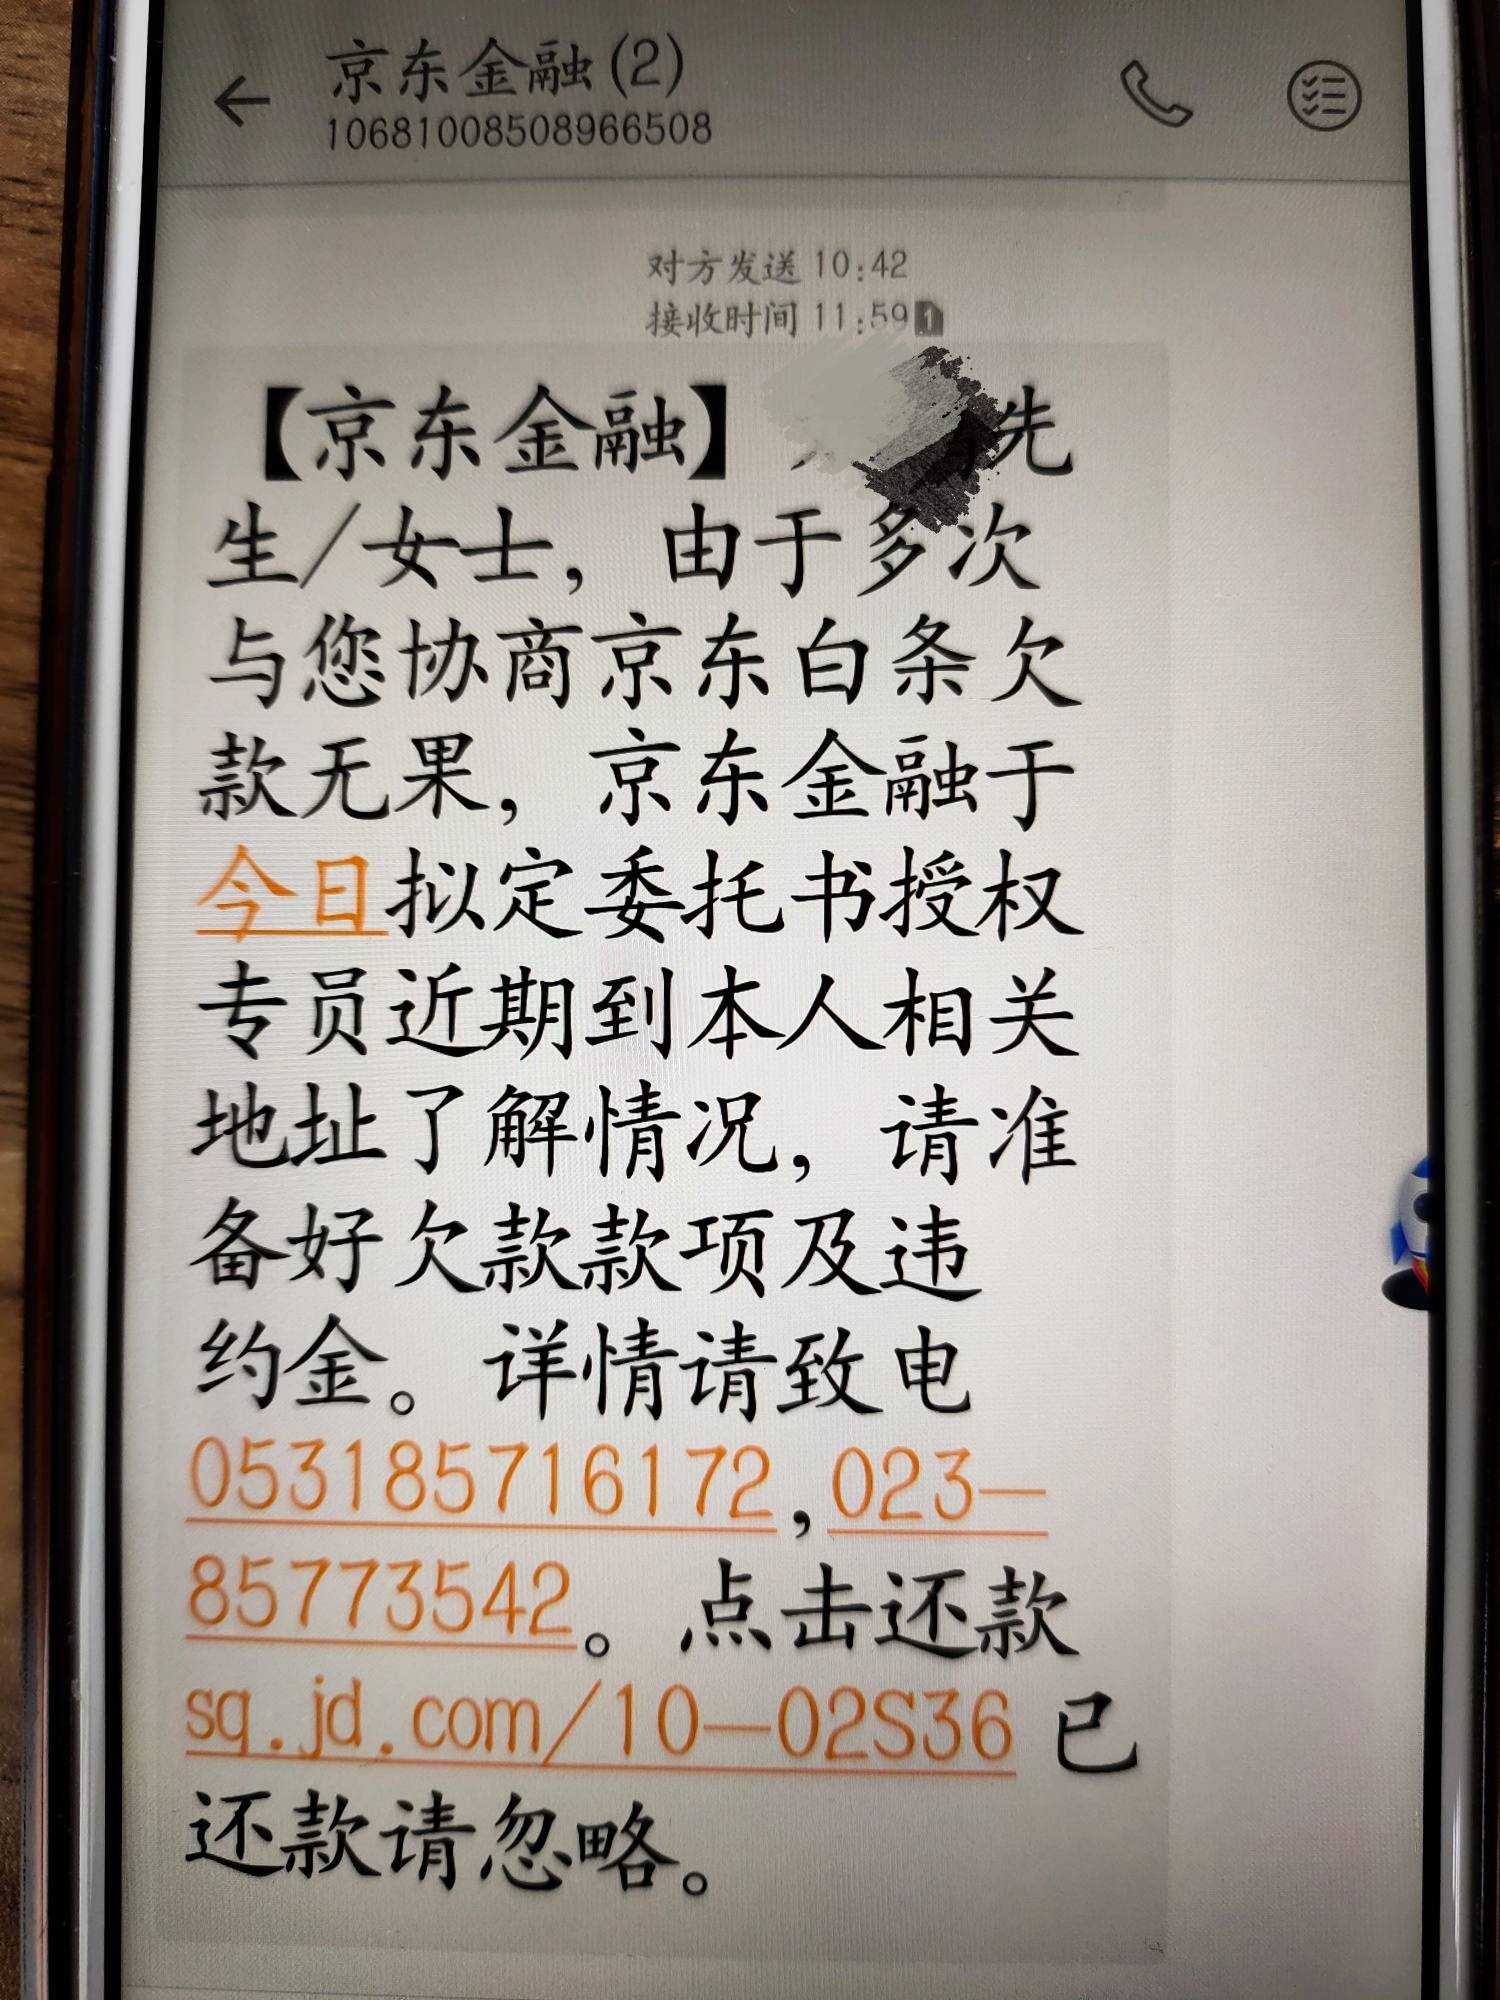 京东金融(2)
10681008508966508
对方发送 10:42
接收时间 11:59 1
【京东金融】 先
生/女士，由于多次
与您协商京东白条欠
款无果，京东金融于
今日拟定委托书授权
专员近期到本人相关
地址了解情况，请准
备好欠款款项及违
约金。详情请致电
053185716172,023-
85773542。点击还款
sq.jd.com/10-02S36 已
还款请忽略。